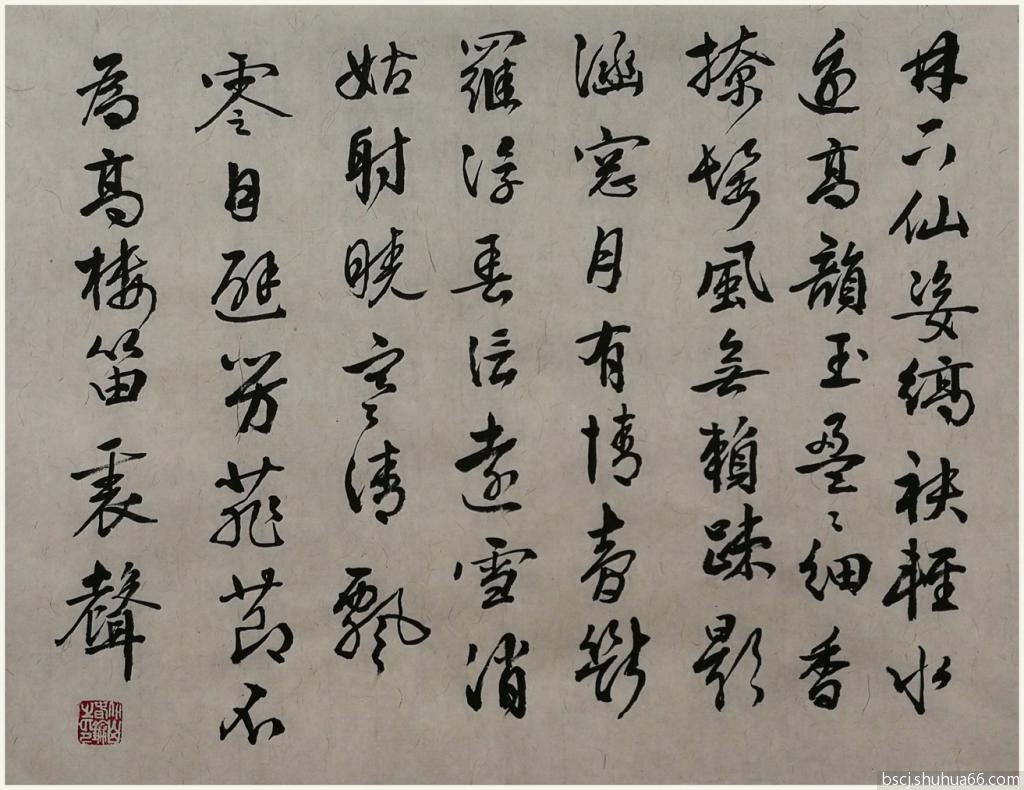 林下仙姿縞袂輕水
邊高韻玉盈〻細香
撩鬢風無賴疎影
涵窓月有情青斷
羅浮春信遠雪消
姑射曉寒清飄
零自避芳菲節不
為高樓笛裏聲
bscj.shuhua66.com